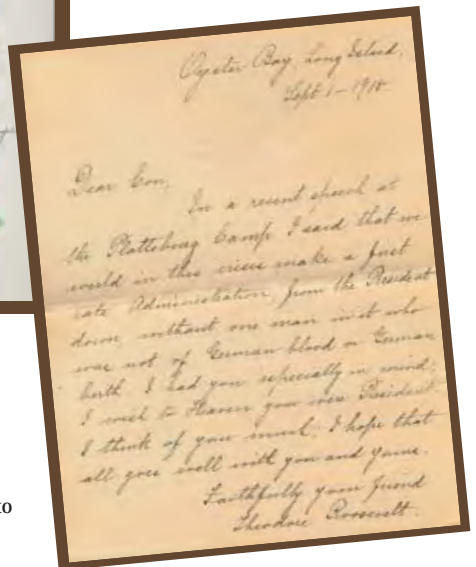 Oyster Bay, Long Island,
Sept 1 - 191
Dear Con,
In a recent speech at
the Plattsburg Camp I said that we
could in this crisis make a first
rate Administration, from the President
down, without one man in it who
was not of German blood or German
birth. I had you especially in mind;
I wish to Heaven you were President.
I think of you much; I hope that
all goes well with you and yours.
Faithfully your friend
Theodore Roosevelt.
to